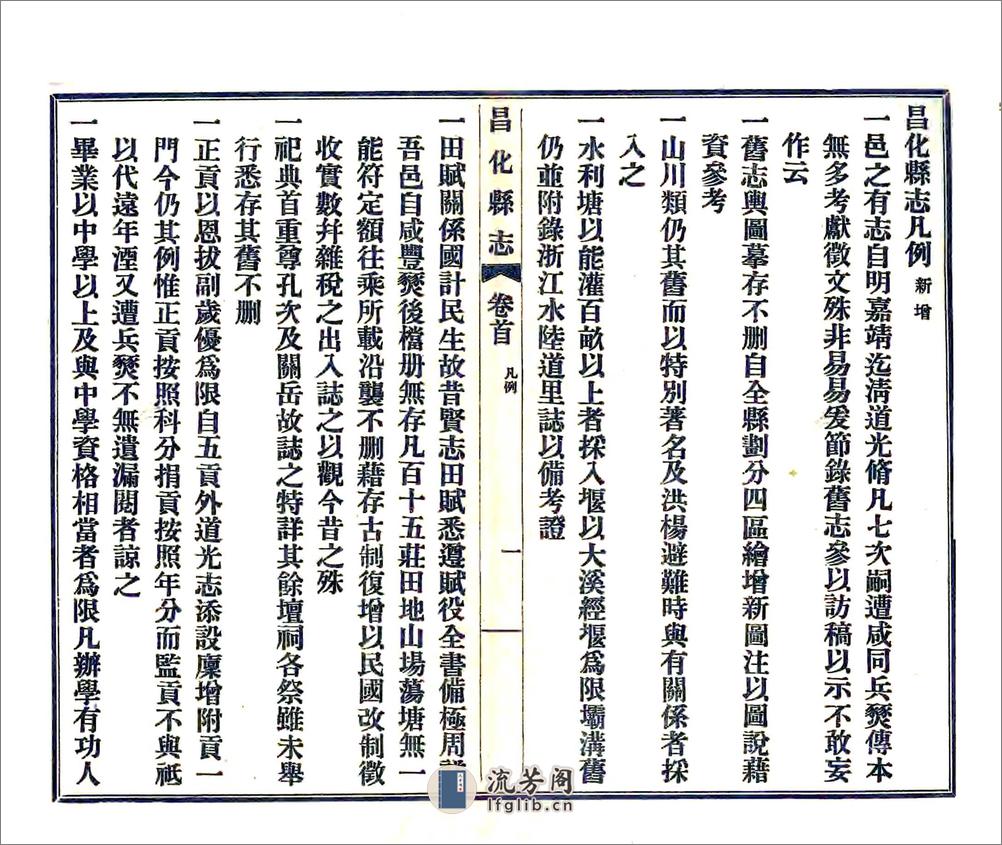 昌化縣志凡例 新增
一邑之有志自明嘉靖迄淸道光脩凡七次嗣遭咸同兵燹傳本
無多考獻徵文殊非易易爰節錄舊志參以訪稿以示不敢妄
作云
一舊志輿圖摹存不删自全縣劃分四區繪增新圖注以圖說藉
資參考
一山川類仍其舊而以特別著名及洪楊避難時與有關係者採
入之
一水利塘以能灌百畝以上者採入堰以大溪經堰爲限壩溝舊
仍並附錄浙江水陸道里誌以備考證
昌化縣志 卷首 凡例 一
一田賦關係國計民生故昔賢志田賦悉遵賦役全書備極周
吾邑自咸豐燹後檔册無存凡百十五莊田地山場蕩塘無一
能符定額往乘所載沿襲不删藉存古制復增以民國改制徵
收實數幷雜稅之出入誌之以觀今昔之殊
一祀典首重尊孔次及關岳故誌之特詳其餘壇祠各祭雖未舉
行悉存其舊不删
一正貢以恩拔副歲優爲限自五貢外道光志添設廩增附貢一
門今仍其例惟正貢按照科分捐貢按照年分而監貢不與祗
以代遠年湮又遭兵燹不無遺漏閱者諒之
一畢業以中學以上及與中學資格相當者爲限凡辦學有功人
流芳阁
lfglib.cn